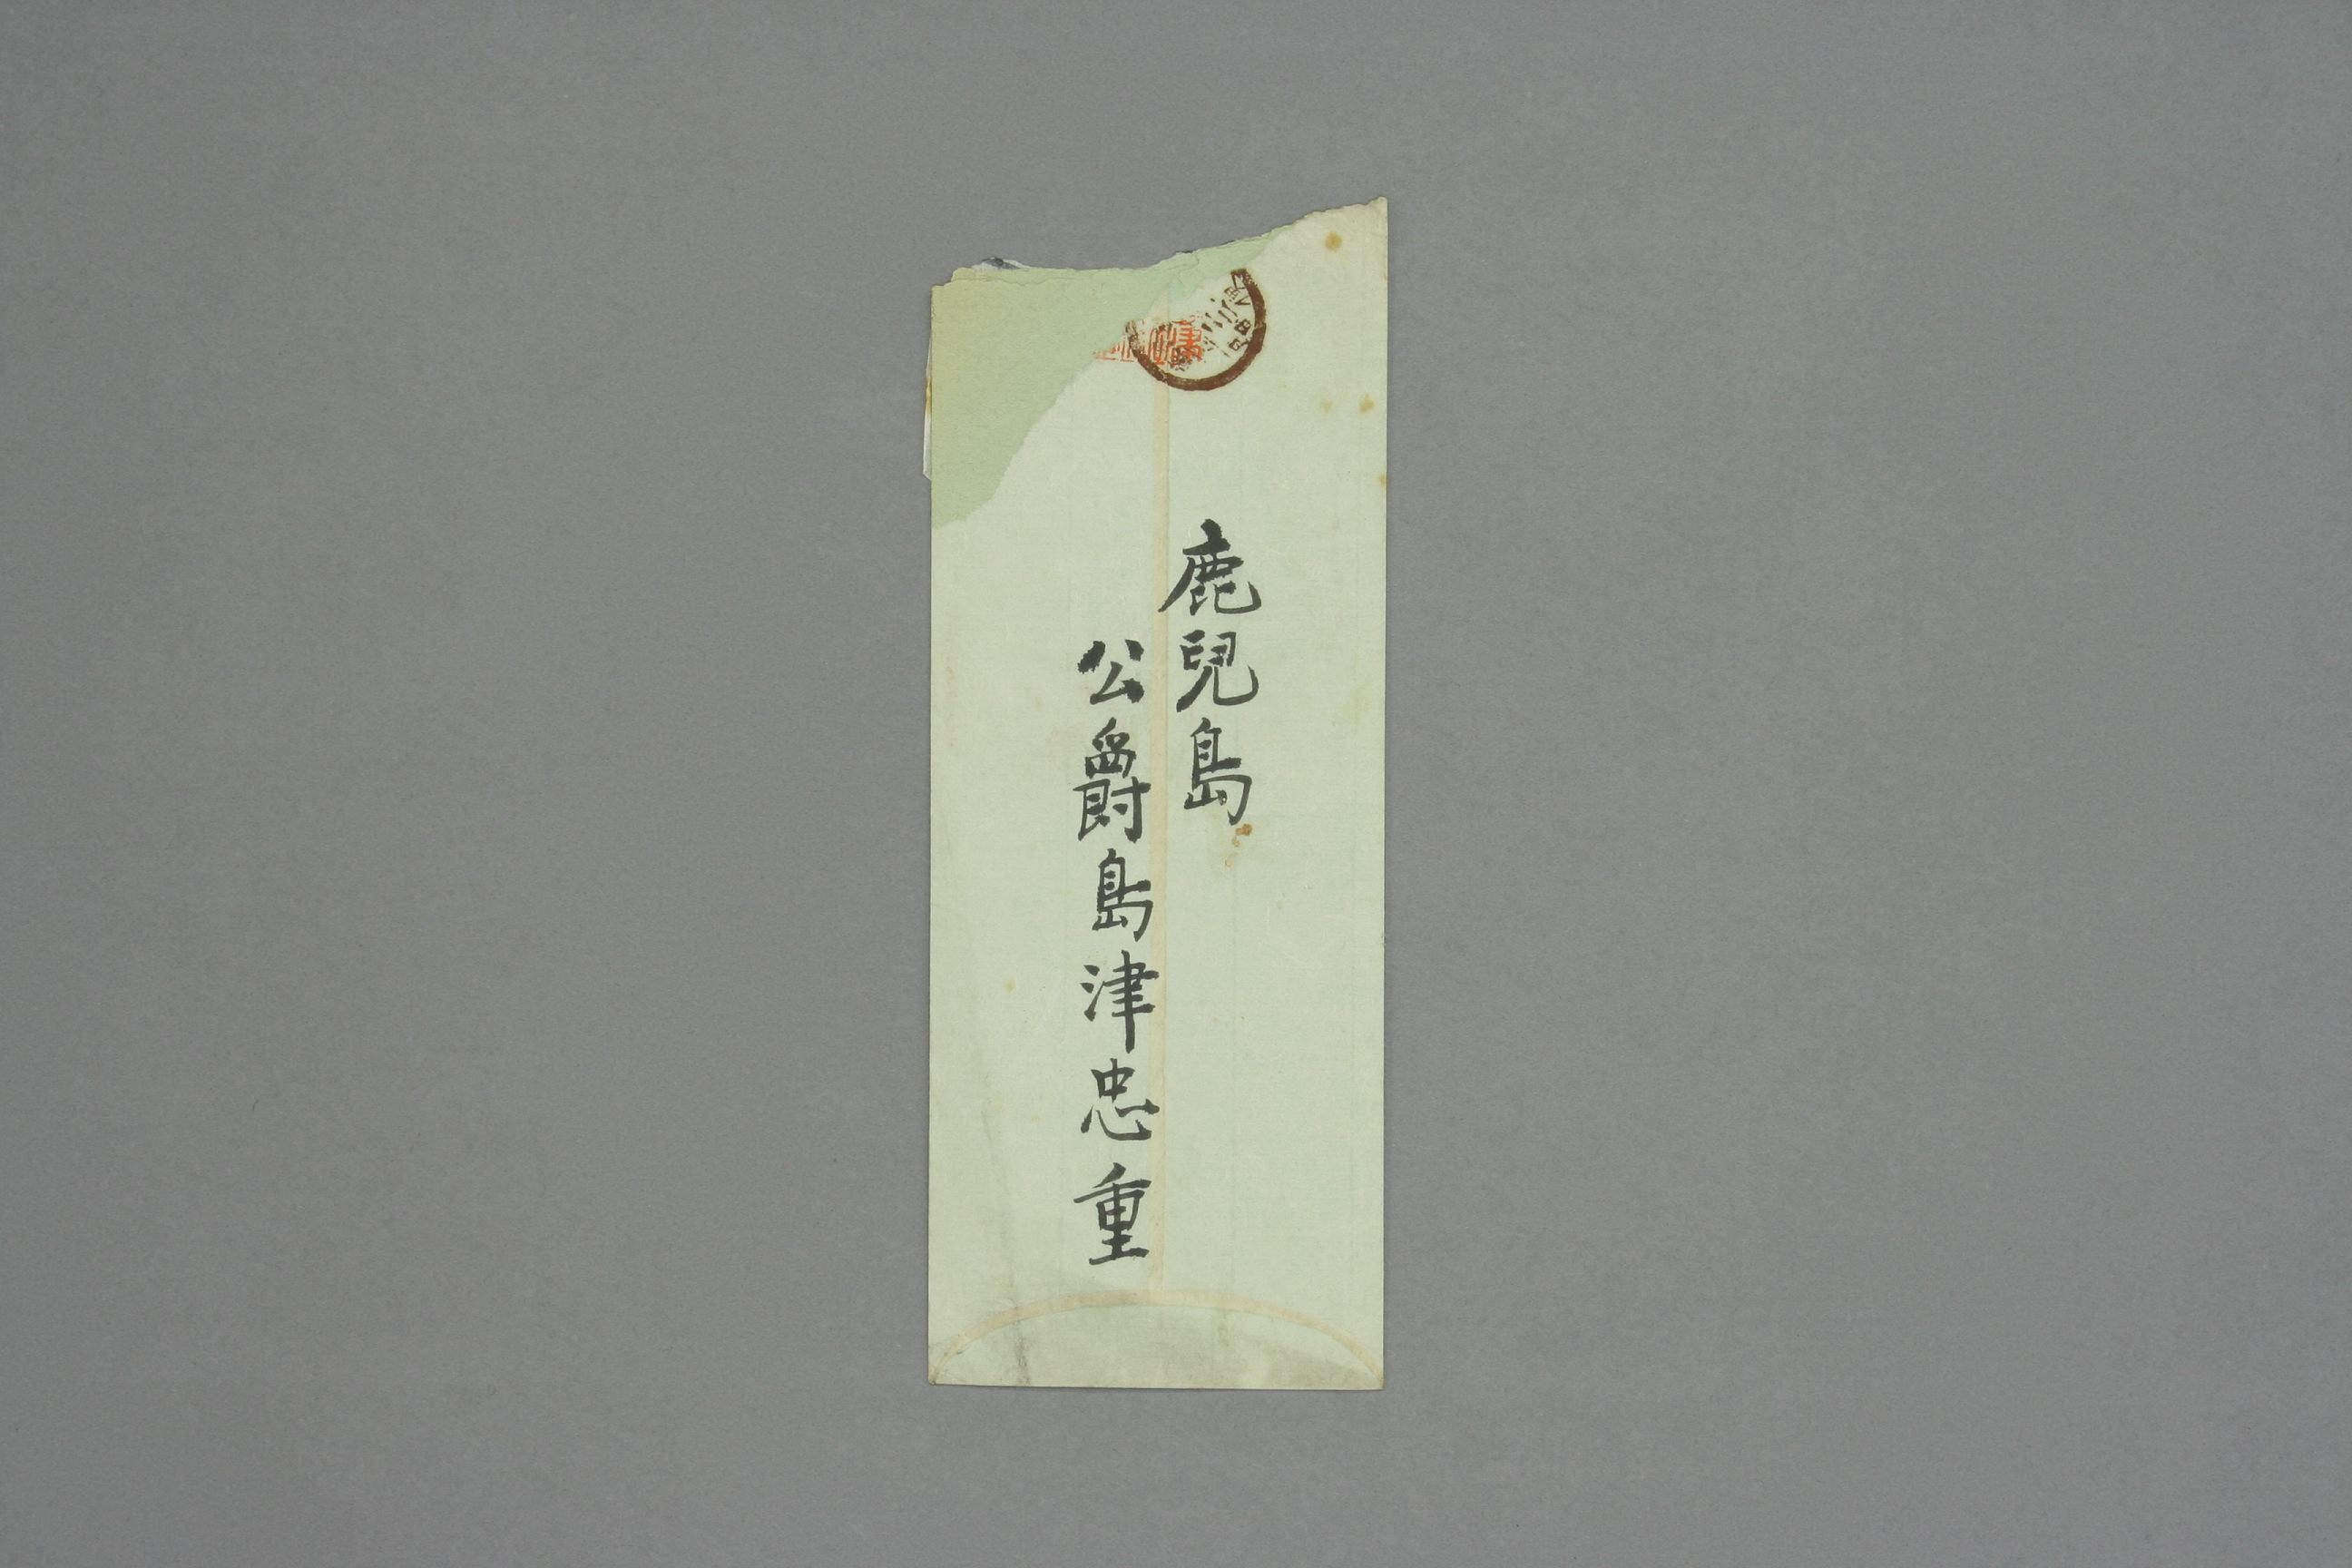 鹿兒島
公爵島津忠重